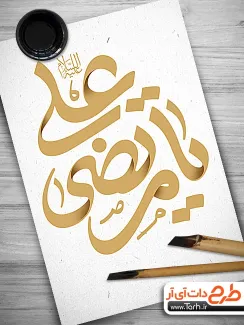 علیه السلام
یا علی مرتضی
طرح دات آی آر
www.Tarh.ir